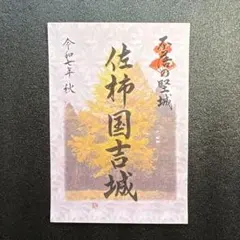 不落の堅城
佐柿国吉城
令和七年 秋